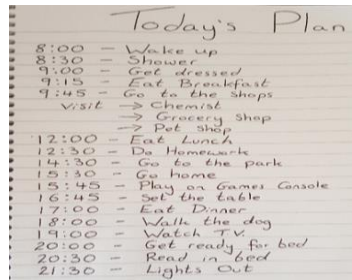 Today's Plan
8:00 - Wake up
8:30 - Shower
9:00 - Get dressed
9:15 - Eat Breakfast
9:45 - Go to the shops
Visit → Chemist
→ Grocery shop
→ Pet shop
12:00 - Eat Lunch
12:30 - Do Homework
14:30 - Go to the park
15:30 - Go home
15:45 - Play on Games Console
16:45 - Set the table
17:00 - Eat Dinner
18:00 - Walk the dog
19:00 - Watch T.V.
20:00 - Get ready for bed
20:30 - Read in bed
21:30 - Lights Out